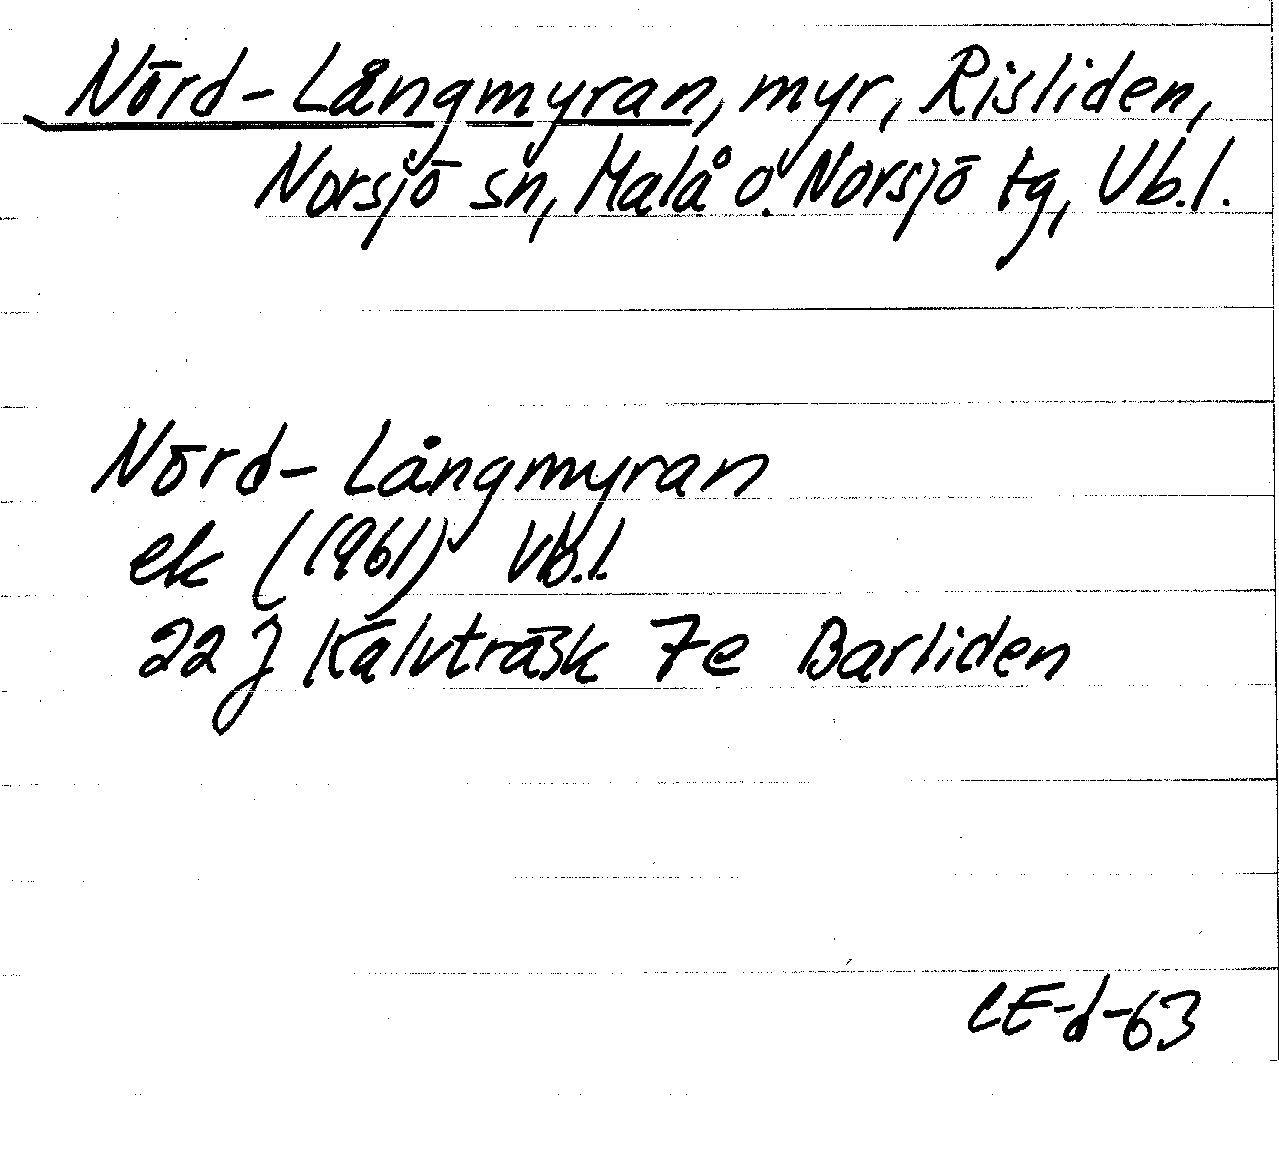 Nörd-Långmyran, myr, Risliden,
Norsjö sn, Malå o. Norsjö tg, Vb.l.
Nörd-Långmyran
ek (1961) Vb.l.
22 J Kalvträsk 7e Barliden
CE-d-63